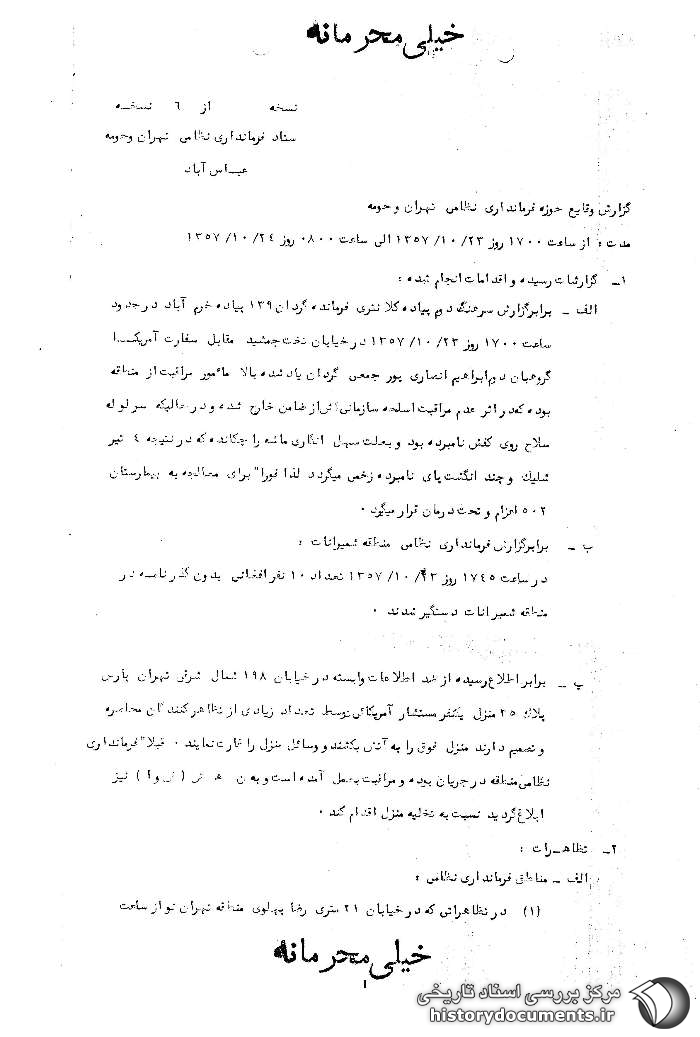 خیلی محرمانه
نسخه از ٦ نسخه
ستاد فرمانداری نظامی تهران وحومه
عباس آباد
گزارش وقایع حوزه فرمانداری نظامی تهران وحومه
مدت : از ساعت ١٧٠٠ روز ٢٣/ ١٠/ ١٣٥٧ الی ساعت ٠٨٠٠ روز ٢٤/ ١٠/ ١٣٥٧
١ــ گزارشات رسیده و اقدامات انجام شده :
الف ــ برابرگزارش سرهنگ دوم پیاده کلانتری فرمانده گردان ١٣٩ پیاده خرم آباد درحدود
ساعت ١٧٠٠ روز ٢٣/ ١٠/ ١٣٥٧ درخیابان تخت جمشید مقابل سفارت آمریکـــا
گروهبان دوم ابراهیم انصاری پور جمعی گردان یاد شده بالا مأمور مراقبت از منطقه
بوده که در اثر عدم مراقبت اسلحه سازمانی اش از ضامن خارج شده و در حالیکه سر لوله
سلاح روی کفش نامبرده بود و بعلت سهل انگاری ماشه را چکانده که در نتیجه ٤ تیر
شلیک و چند انگشت پای نامبرده زخمی میگردد لذا فورا" برای معالجه به بیمارستان
٥٠٢ اعزام و تحت درمان قرار میگیرد .
ب ــ برابرگزارش فرمانداری نظامی منطقه شمیرانات :
در ساعت ١٧٤٥ روز ٢٣/ ١٠/ ١٣٥٧ تعداد ١٠ نفر افغانی بدون گذرنامه در
منطقه شمیرانات دستگیر شدند .
پ ــ برابر اطلاع رسیده از ضد اطلاعات وابسته در خیابان ١٩٨ شمال شرقی تهران پارس
پلاک ٣٥ منزل یکنفر مستشار آمریکائی توسط تعداد زیادی از تظاهرکنندگان محاصره
و تصمیم دارند منزل فوق را به آتش بکشند و وسائل منزل را غارت نمایند . قبلا" فرمانداری
نظامی منطقه در جریان بوده و مراقبت بعمل آمده است و به ن ه ش ( ) نیز
ابلاغ گردید نسبت به تخلیه منزل اقدام کند .
٢ــ تظاهــرات :
الف ــ مناطق فرمانداری نظامی :
(١) در تظاهراتی که در خیابان ٢١ متری رضا پهلوی منطقه تهران نو از ساعت
خیلی محرمانه
١
مرکز بررسی اسناد تاریخی
historydocuments.ir